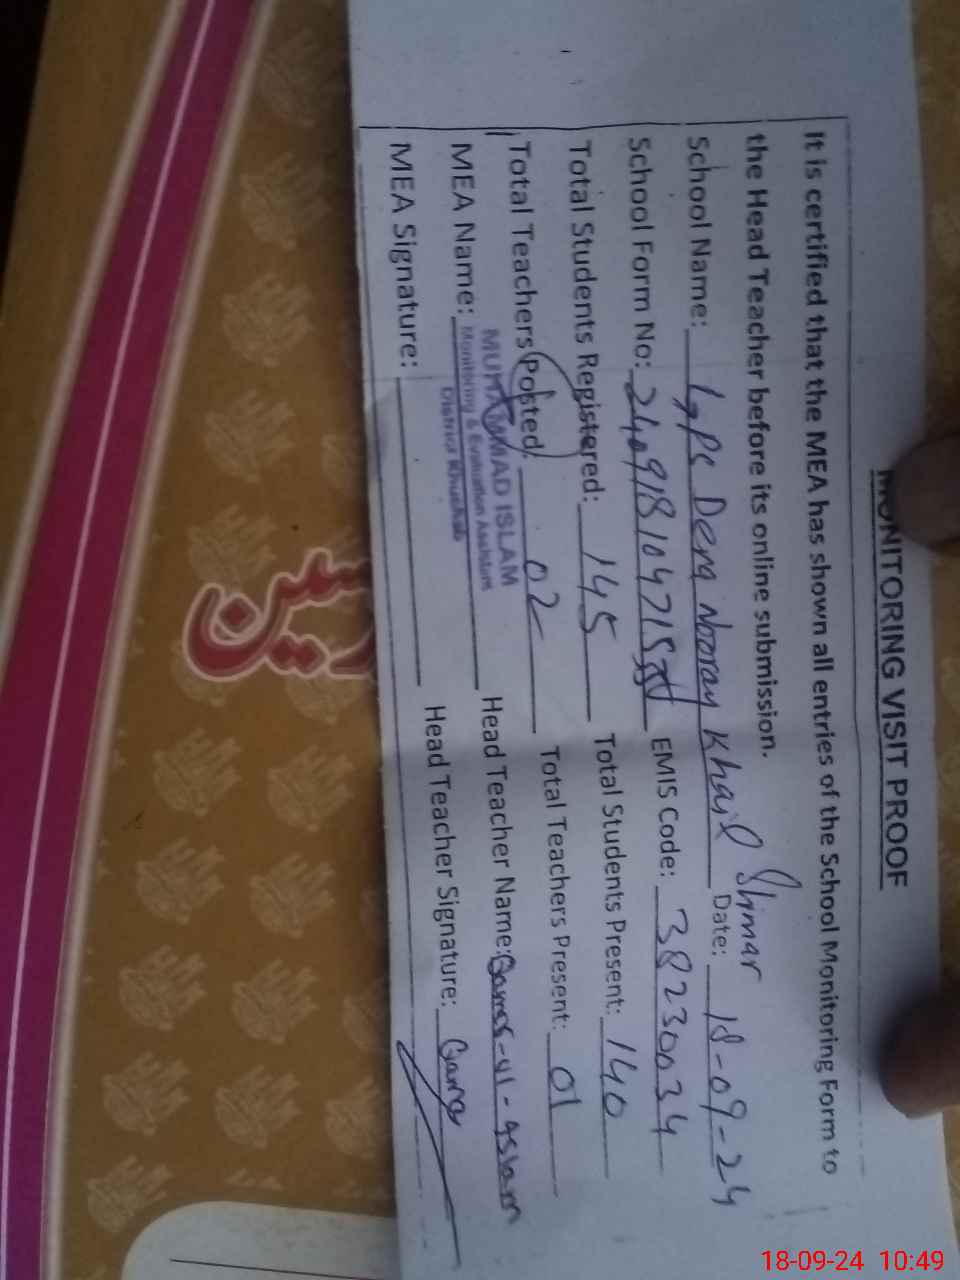 MONITORING VISIT PROOF
It is certified that the MEA has shown all entries of the School Monitoring Form to
the Head Teacher before its online submission.
School Name: Dera Nooray Khail Shimar Date: 18-09-24
School Form No: EMIS Code: 38230034
Total Students Registered: 145 Total Students Present: 140
Total Teachers Posted: 02 Total Teachers Present: 01
MUHAMMAD ISLAM
MEA Name: Monitoring & Evaluation Assistant Head Teacher Name: Qamar-ul-Islam
District Khushab
MEA Signature: Head Teacher Signature:
18-09-24 10:49